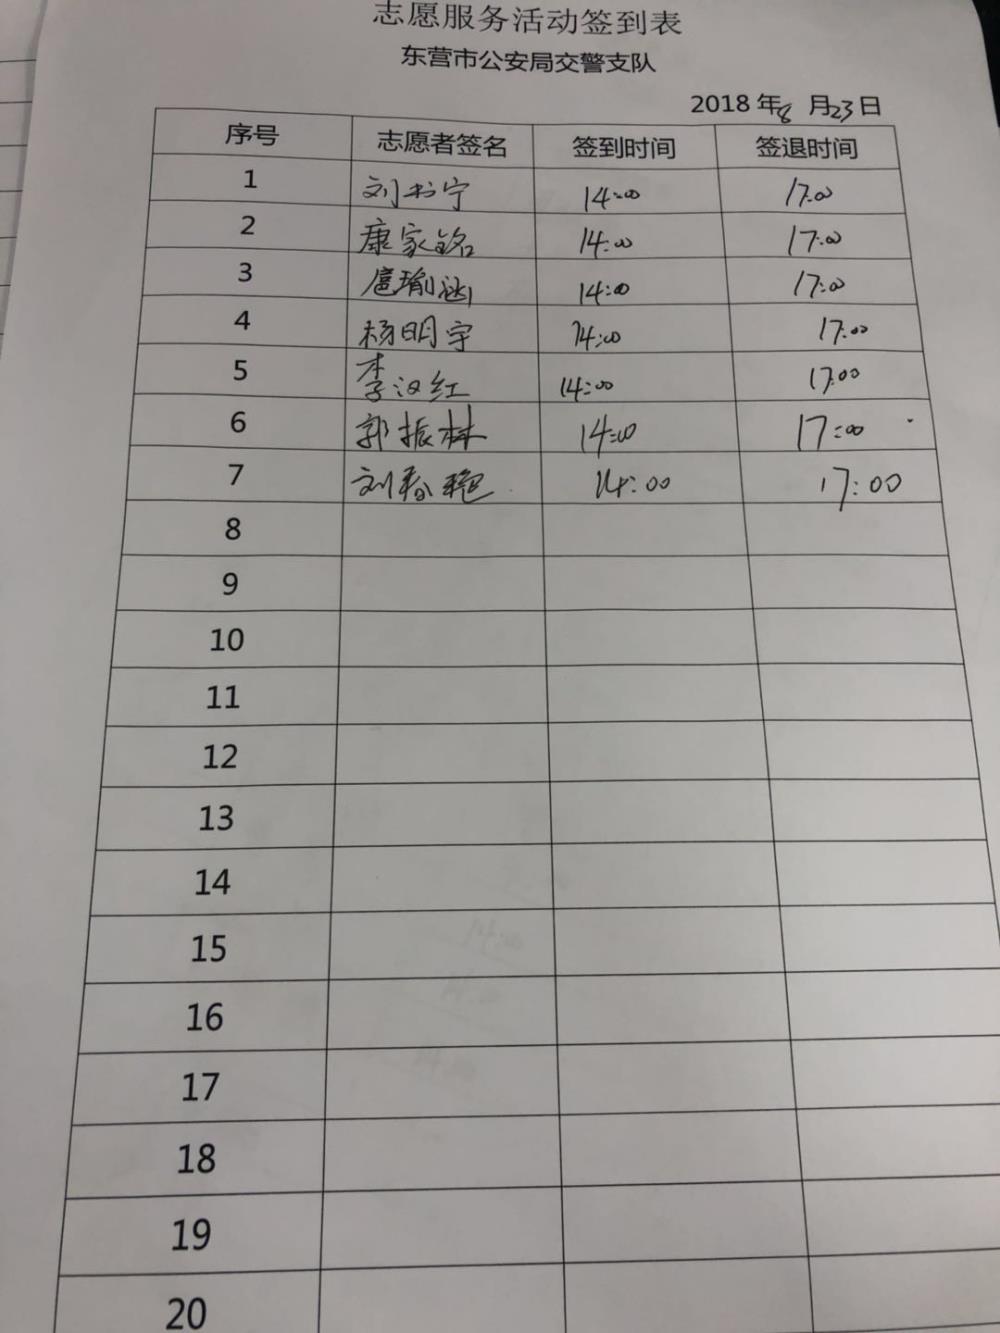 志愿服务活动签到表
东营市公安局交警支队
2018 年 8 月 23 日
序号 志愿者签名 签到时间 签退时间
1 刘书宁 14:00 17:00
2 康家铭 14:00 17:00
3 扈瑜涵 14:00 17:00
4 杨明宇 14:00 17:00
5 李汉红 14:00 17:00
6 郭振林 14:00 17:00
7 刘春艳 14:00 17:00
8
9
10
11
12
13
14
15
16
17
18
19
20